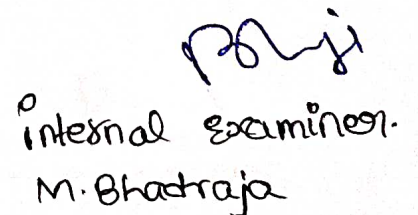 internal examiner.
M. Bhadraja